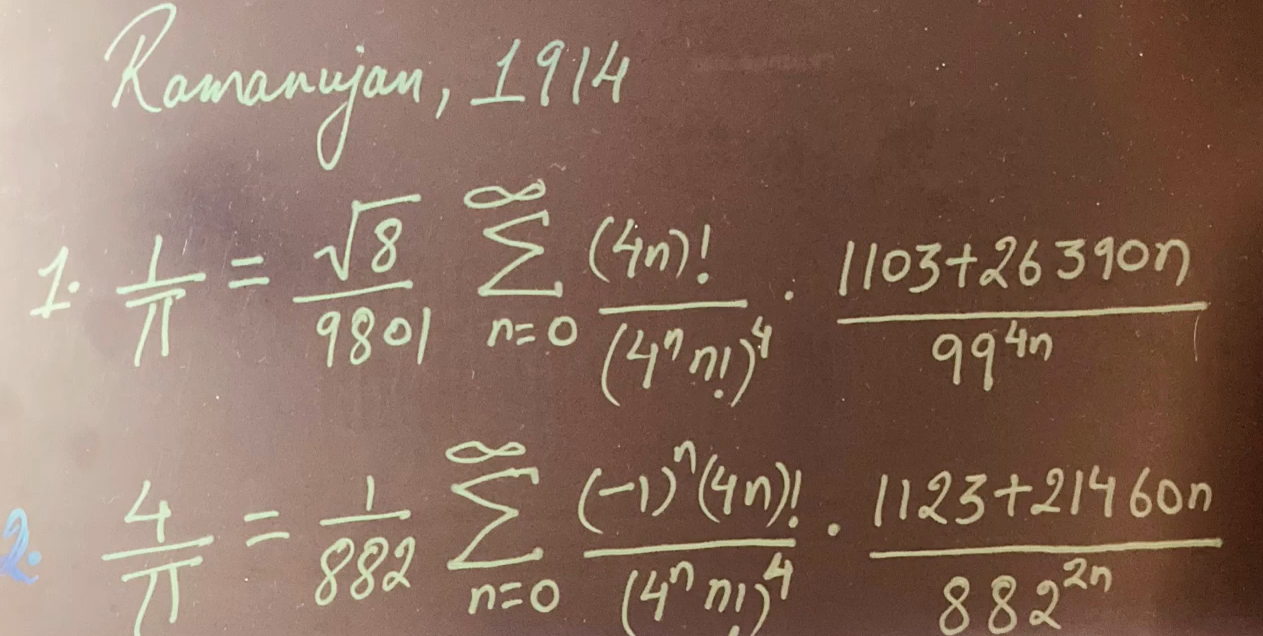 Ramanujan, 1914
1. 1/π = √8/9801 ∑_{n=0}^{∞} (4n)!/(4ⁿ n!)⁴ · (1103+26390n)/99^{4n}
2. 4/π = 1/882 ∑_{n=0}^{∞} (-1)ⁿ(4n)!/(4ⁿ n!)⁴ · (1123+21460n)/882^{2n}